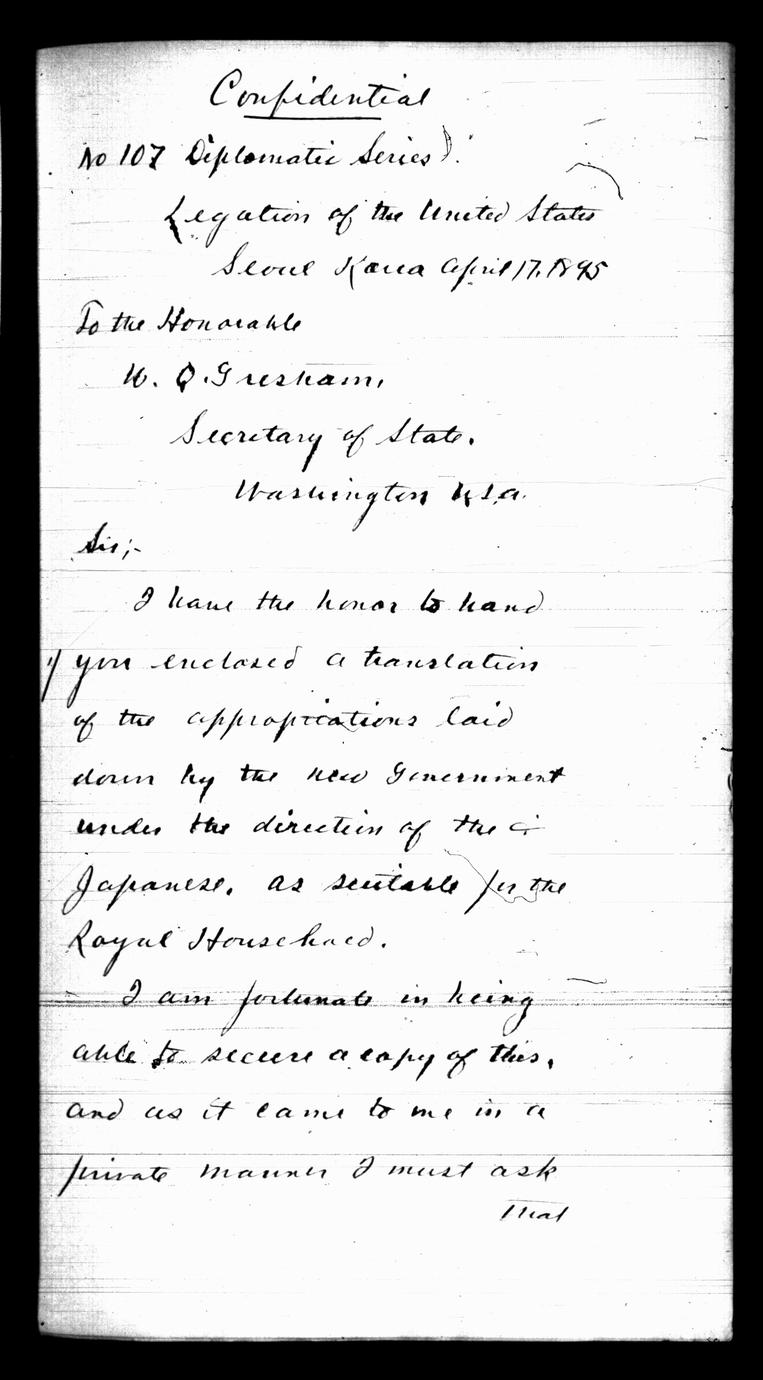 Confidential
No 107 Diplomatic Series).
Legation of the United States
Seoul Korea April 17, 1895
To the Honorable
W. Q. Gresham,
Secretary of State.
Washington U.S.A.
Sir;-
I have the honor to hand
1/ you enclosed a translation
of the appropriations laid
down by the new Government
under the direction of the
Japanese, as suitable for the
Royal Household.
I am fortunate in being
able to secure a copy of this,
and as it came to me in a
private manner I must ask
that